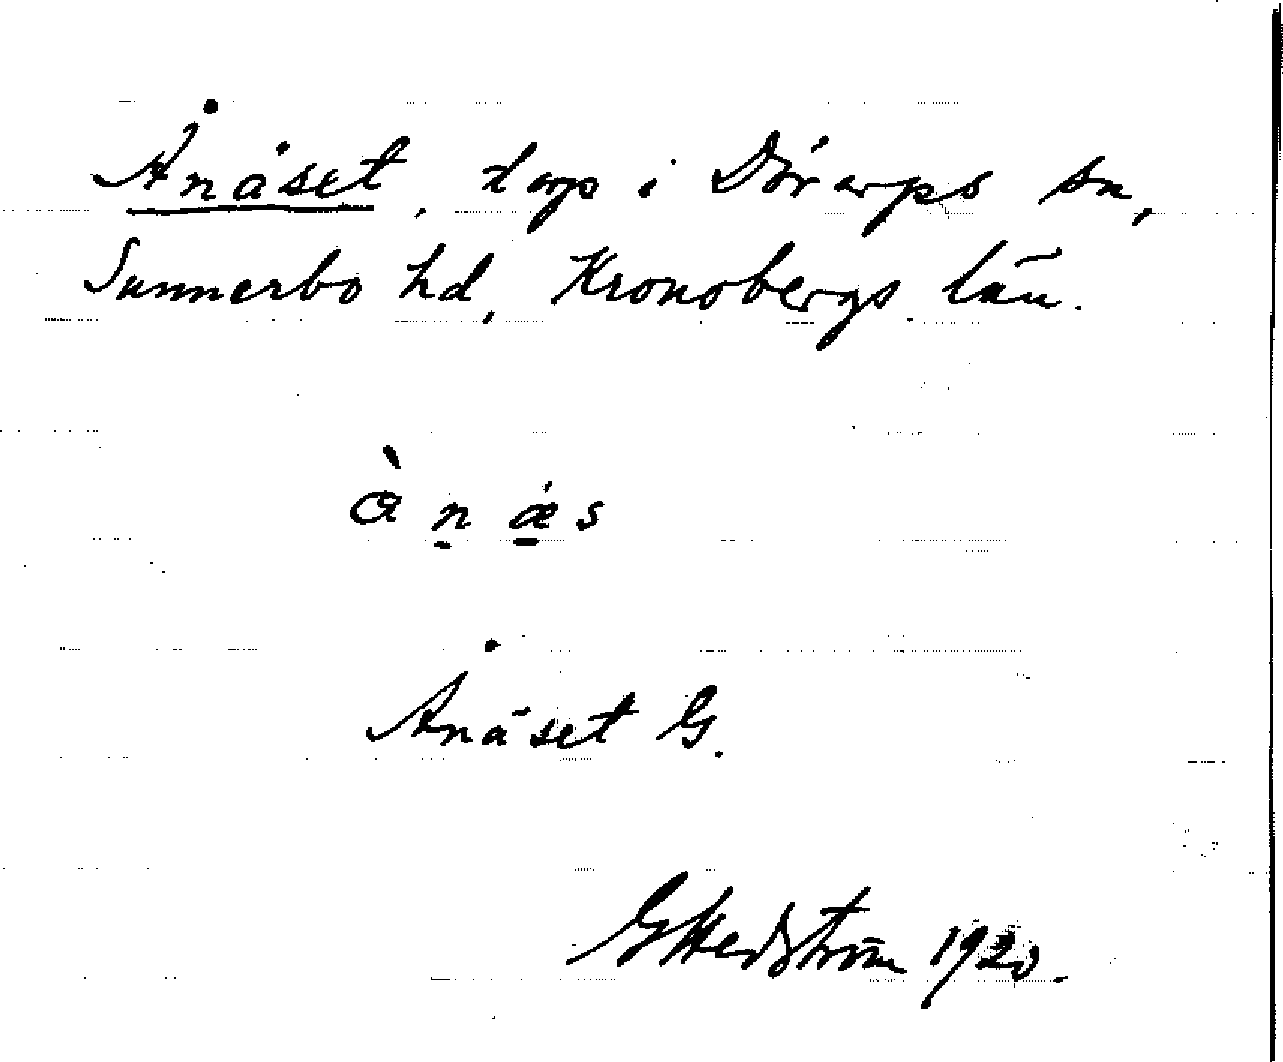 Ånäset, torp i Dörarps sn,
Sunnerbo hd, Kronobergs län.
ànǽs
Ånäset G.
G Hedström 1920.